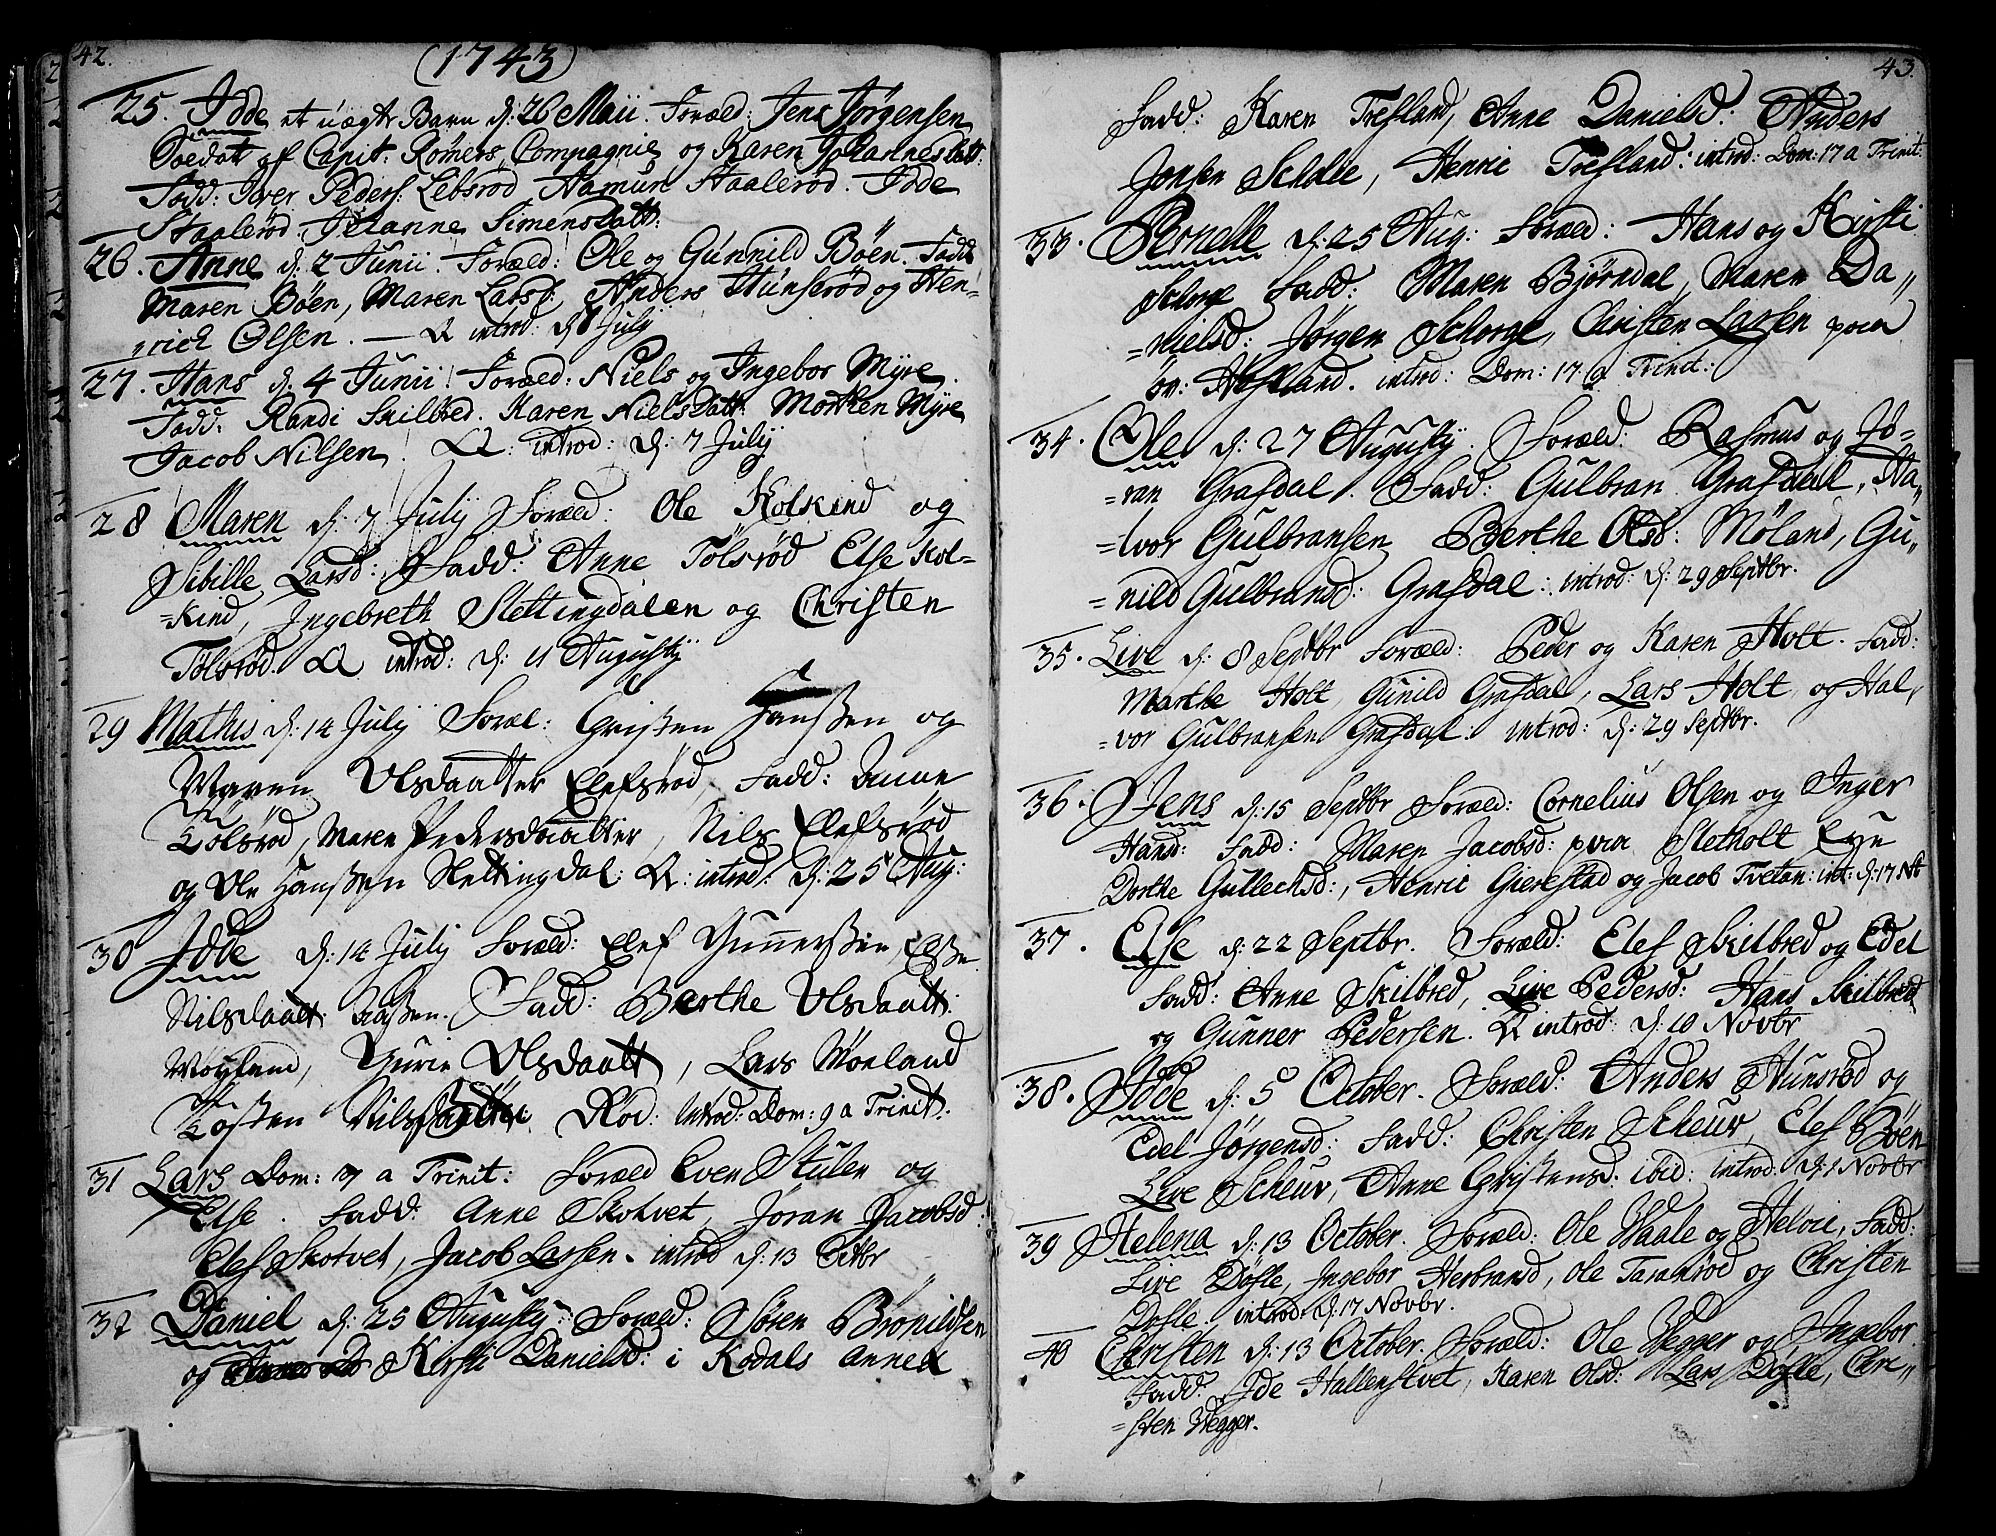 42.
(1743)
25. Idde et uægte Barn d: 26 Maii. Foræld: Jens Jørgensen
Soldat af Capit: Rømers Compagnie og Karen Johannesdatt:
Fadd: Iver Peders: Lebsrød Aamun Staalerød. Idde
Staalerød. Johanne Simensdatt:
26. Anne d: 2 Junii. Foræld: Ole og Gunnild Böen. Fadd
Maren Böen, Maren Larsd: Anders Hunsrød og Hen-
rich Olsen. — introd: d: Julij
27. Hans d. 4 Junii. Foræld: Niels og Ingebor Myre.
Fadd: Randi Skilbred. Karen Nielsdatt: Morten Myre
Jacob Nilsen. introd: d: 7 Julij
28 Maren d: 7 Julij Foræld: Ole Kolkind og
Sibille Larsd: Fadd: Anne Tölsröd Else Kol=
=kind, Ingebreth Slettingdalen og Christen
Tölsröd. introd: d: 11 Augustij
29 Mathis d: 14 Julij Foræl: Christen Hanssen og
Maren Olsdaatter Elefsröd, Fadd: Anne
Tölsröd, Maren Pedersdaatter, Nils Elefsröd
og Ole Hanssen Slettingdal: introd: d: 25 Aug:
30 Idde d: 14 Julij Foræld: Elef Gunnerssen,
Nilsdaatt: Fadd: Berthe Olsdaatt:
Olsdaatt, Lars Möeland
Nilsdaatter Röd: Introd: Dom: 9 a Trinit:
31 Lars Dom: 7 a Trinit: Foræld Even Stulen og
Else. Fadd: Anne Skotvet, Jöran Jacobsd:
Elef Skotvet, Jacob Larsen. introd d: 13
32 Daniel d: 25 Augustij. Foræld: Sören Brönildsen
og Kirsti Danielsd: i Kodals Annex
43.
Fadd: Karen Trefland, Anne Danielsd: Anders
Jonsen Scholie, Henric Trefland: introd: Dom: 17 a Trinit:
33. Pernelle d: 25 Aug: Foræld: Hans og Kirsti
Schorge Fadd: Maren Björndal, Maren Da"
=nielsd: Jörgen Schorge, Christen Larsen paa
öv: Hesland. introd: Dom: 17 a Trinit:
34. Ole d: 27 Augustij. Foræld: Rasmus og Jö=
=ran Grafdal. Fadd: Gulbran Grafdal, Ha"
=lvor Gulbransen Berthe Olsd: Möland, Gu"
=nild Gulbransd: Grafdal: introd: d: 29 Septbr.
35. Live d: 8 Septbr Foræld: Peder og Karen Holt. Fadd:
Marthe Holt, Gunild Grafdal, Lars Holt og Hal"
=vor Gulbransen Grafdal: introd: d: 29 Septbr.
36. Jens d: 15 Septbr Foræld: Cornelius Olsen og Inger
Hansd: Fadd: Maren Jacobsd: paa Sletholt
Dorthe Gullechsd:, Henric Gierestad og Jacob Tvetan: int: d: 17
37. Else d: 22 Septbr. Foræld: Elef Skilbred og Edel
Fadd: Anne Skilbred, Live Pedersd: Hans Skilbred
og Gunner Pedersen. introd: d: 10 Novbr
38. Idde d: 5 October. Foræld: Anders Hunsröd og
Edel Jörgensd: Fadd: Christen Scheuv, Elef Böen
Live Scheuv, Anne Christensd: ibid: introd: d: 1 Novbr
39 Helena d: 13 October. Foræld: Ole Waale og Heloie, Fadd:
Live Döfle, Ingebor Herbransd, Ole Taranröd og Christen
Dofle introd: d: 17 Novbr.
40 Christen d: 13 October. Foræld: Ole Wegger og Ingebor
Fadd: Ide Hallenstvet, Karen Olsd: Lars Döfle, Chri"
=sten Wegger.